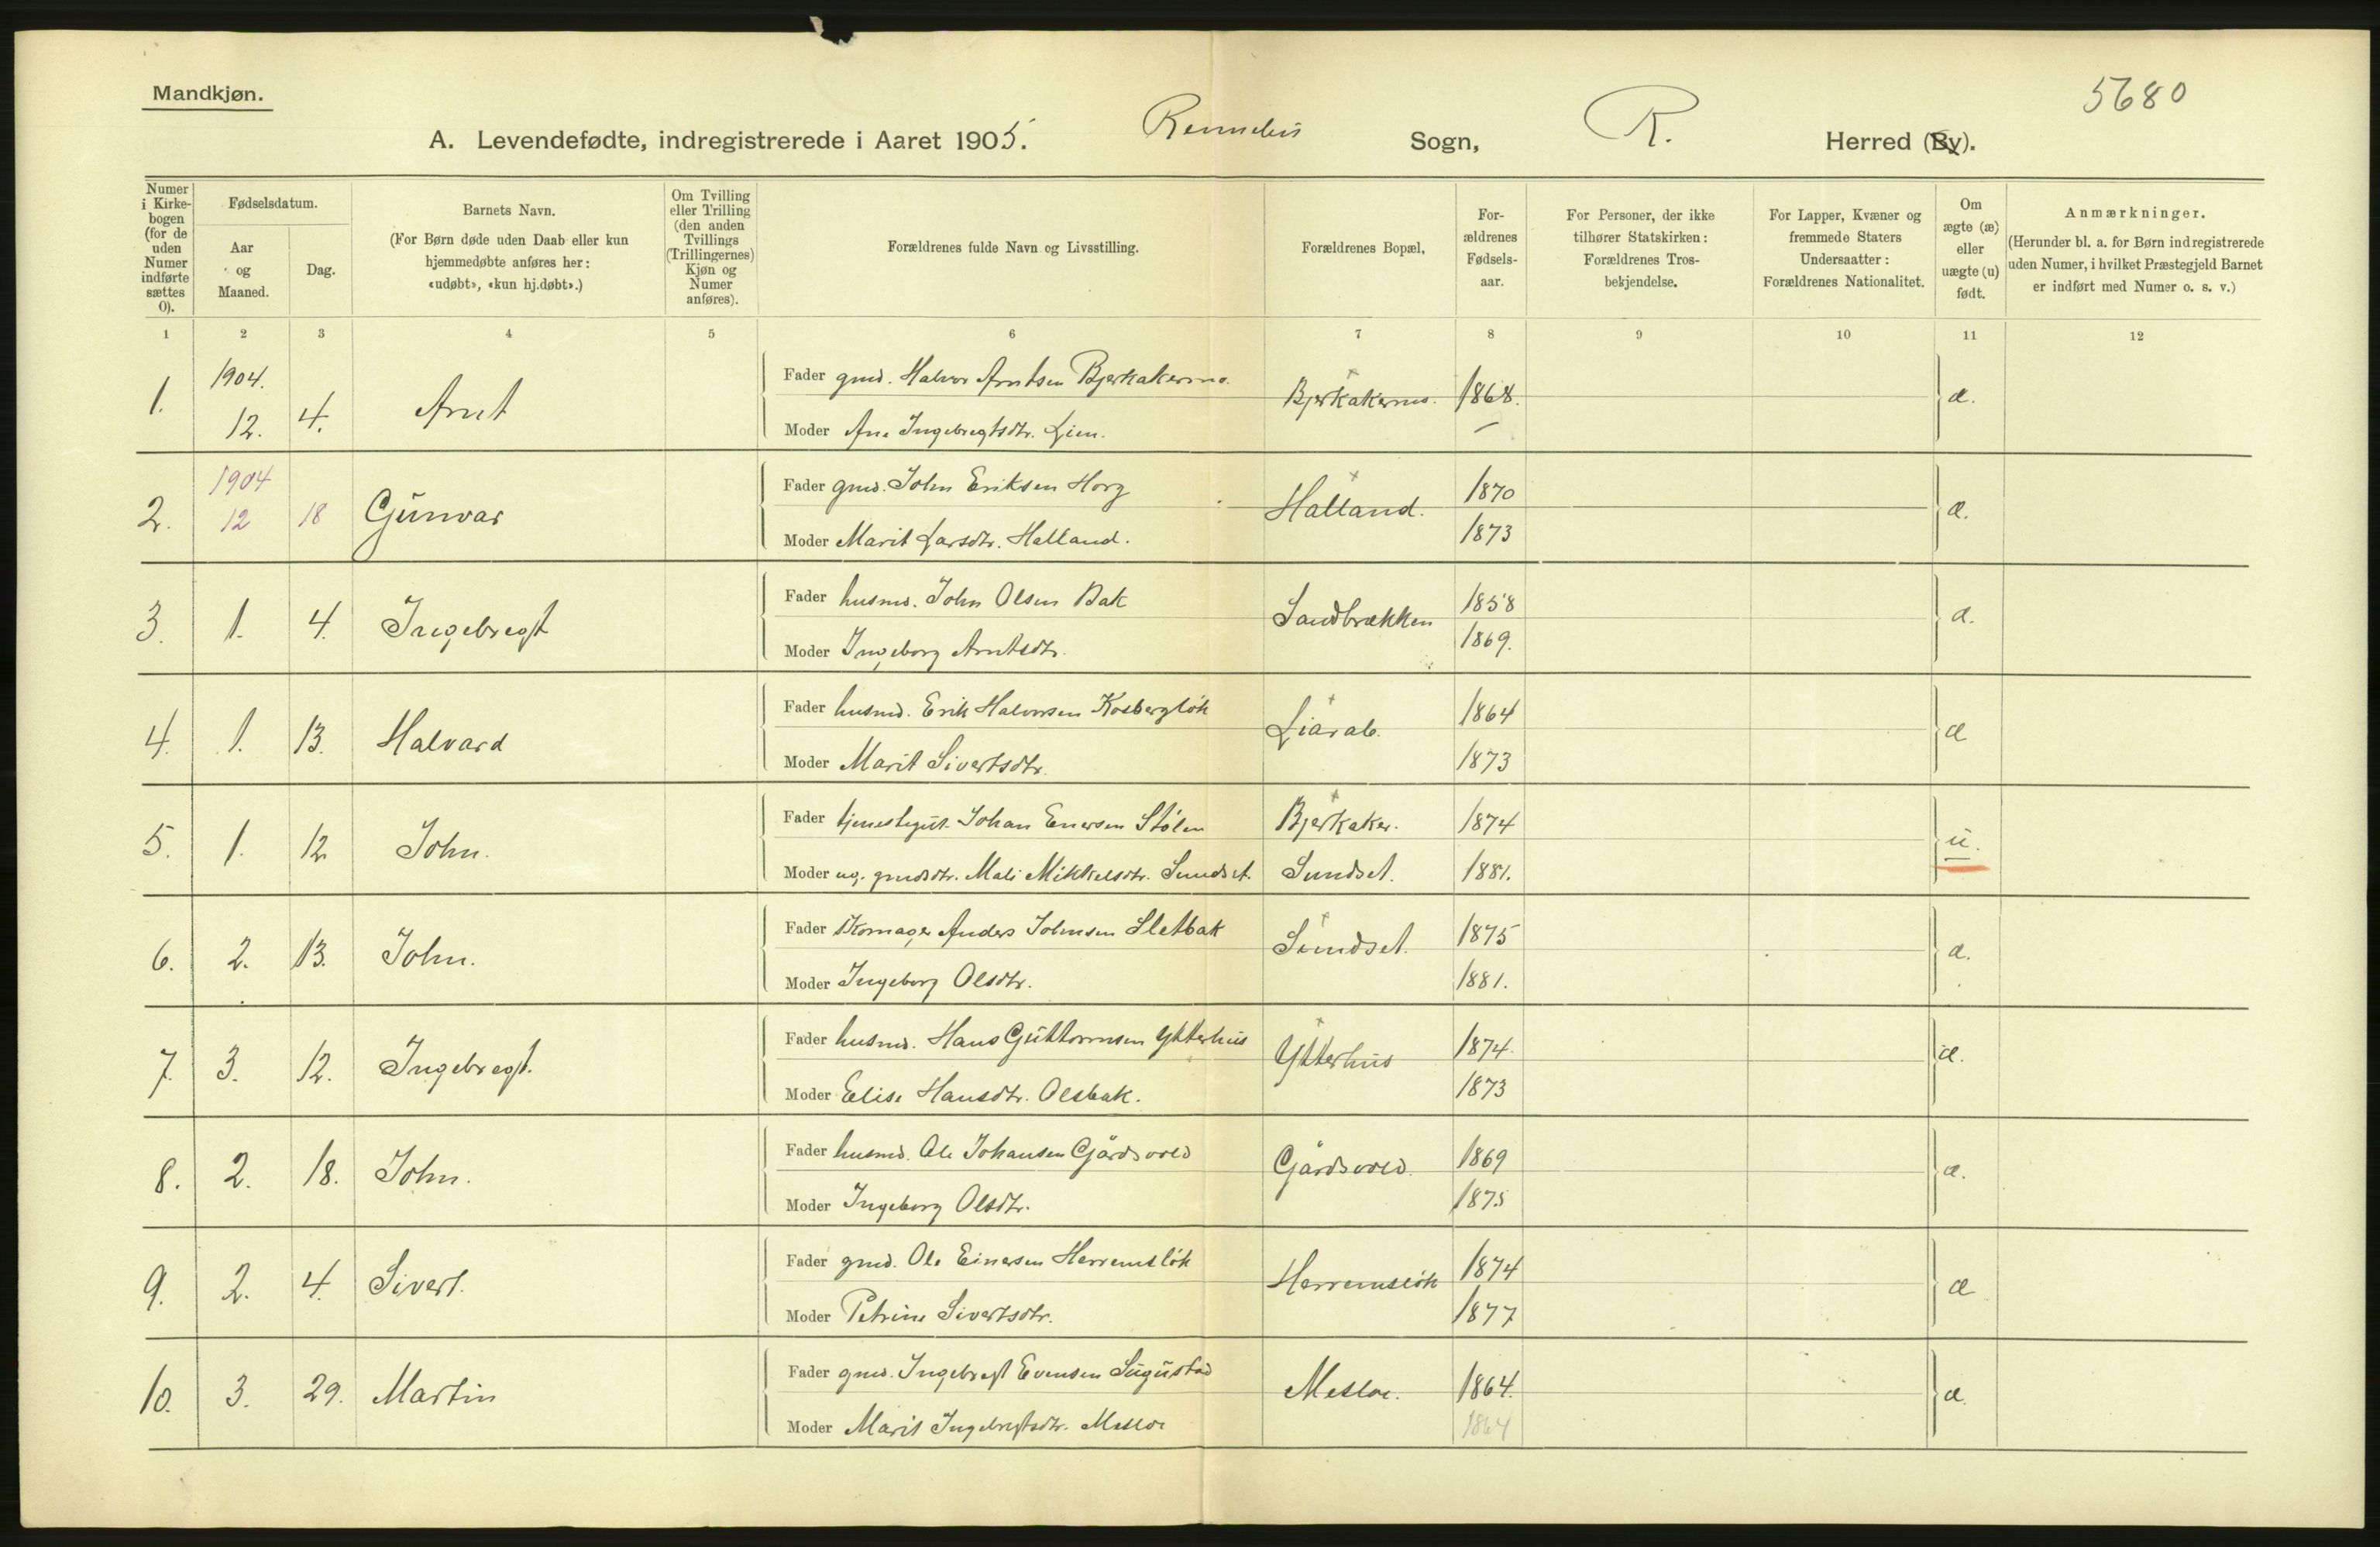 Mandkjøn.
5680
A. Levendefødte, indregistrerede i Aaret 1905. Rennebu Sogn, R. Herred (By).
Numer i Kirkebogen (for de uden Numer indførte sættes 0).
Fødselsdatum.
Aar og Maaned.
Dag.
Barnets Navn.
(For Børn døde uden Daab eller kun hjemmedøbte anføres her: «udøbt», «kun hj.døbt».)
Om Tvilling eller Trilling (den anden Tvillings (Trillingernes) Kjøn og Numer anføres).
Forældrenes fulde Navn og Livsstilling.
Forældrenes Bopæl,
Forældrenes Fødselsaar.
For Personer, der ikke tilhører Statskirken: Forældrenes Trosbekjendelse.
For Lapper, Kvæner og fremmede Staters Undersaatter: Forældrenes Nationalitet.
Om ægte (æ) eller uægte (u) født.
Anmærkninger.
(Herunder bl. a. for Børn indregistrerede uden Numer, i hvilket Præstegjeld Barnet er indført med Numer o. s. v.)
1 2 3 4 5 6 7 8 9 10 11 12
1. 1904. 12. 4. Arnt
Fader gmd. Halvor Arntsen Bjerkakermo. Bjerkakermo. 1868. æ.
Moder Ane Ingebregtsdtr. Lien. –
2. 1904 12 18 Gunvar
Fader gmd. John Eriksen Horg Halland. 1870 æ.
Moder Marit Larsdtr. Halland. 1873
3. 1. 4. Ingebregt
Fader husmd. John Olsen Bak Sandbrækken 1858 æ.
Moder Ingeborg Arntsdtr. 1869.
4. 1. 13. Halvard
Fader husmd. Erik Halvorsen Kosbergløk 1864 æ
Moder Marit Sivertsdtr. 1873
5. 1. 12 John.
Fader tjenestegut. Johan Enersen Stølen Bjerkaker. 1874 u.
Moder ug. gmdsdtr. Mali Mikkelsdtr. Sundset. Sundset. 1881.
6. 2. 13. John.
Fader Skomager Anders Johnsen Sletbak Sundset. 1875 æ.
Moder Ingeborg Olsdtr. 1881.
7. 3. 12. Ingebregt.
Fader husmd. Hans Guttormsen Ytterhus Ytterhus 1874. æ.
Moder Elise Hansdtr. Olsbak. 1873
8. 2. 18. John.
Fader husmd. Ole Johansen Gårdsvold Gårdsvold. 1869 æ.
Moder Ingeborg Olsdtr. 1875
9. 2. 4. Sivert.
Fader gmd. Ole Einersen Herremsløk Herremsløk 1874 æ
Moder Petrine Sivertsdtr. 1877
10. 3. 29. Martin
Fader gmd. Ingebregt Evensen Sugustad Mesloe. 1864. æ.
Moder Marit Ingebregtsdtr. Mesloe 1864